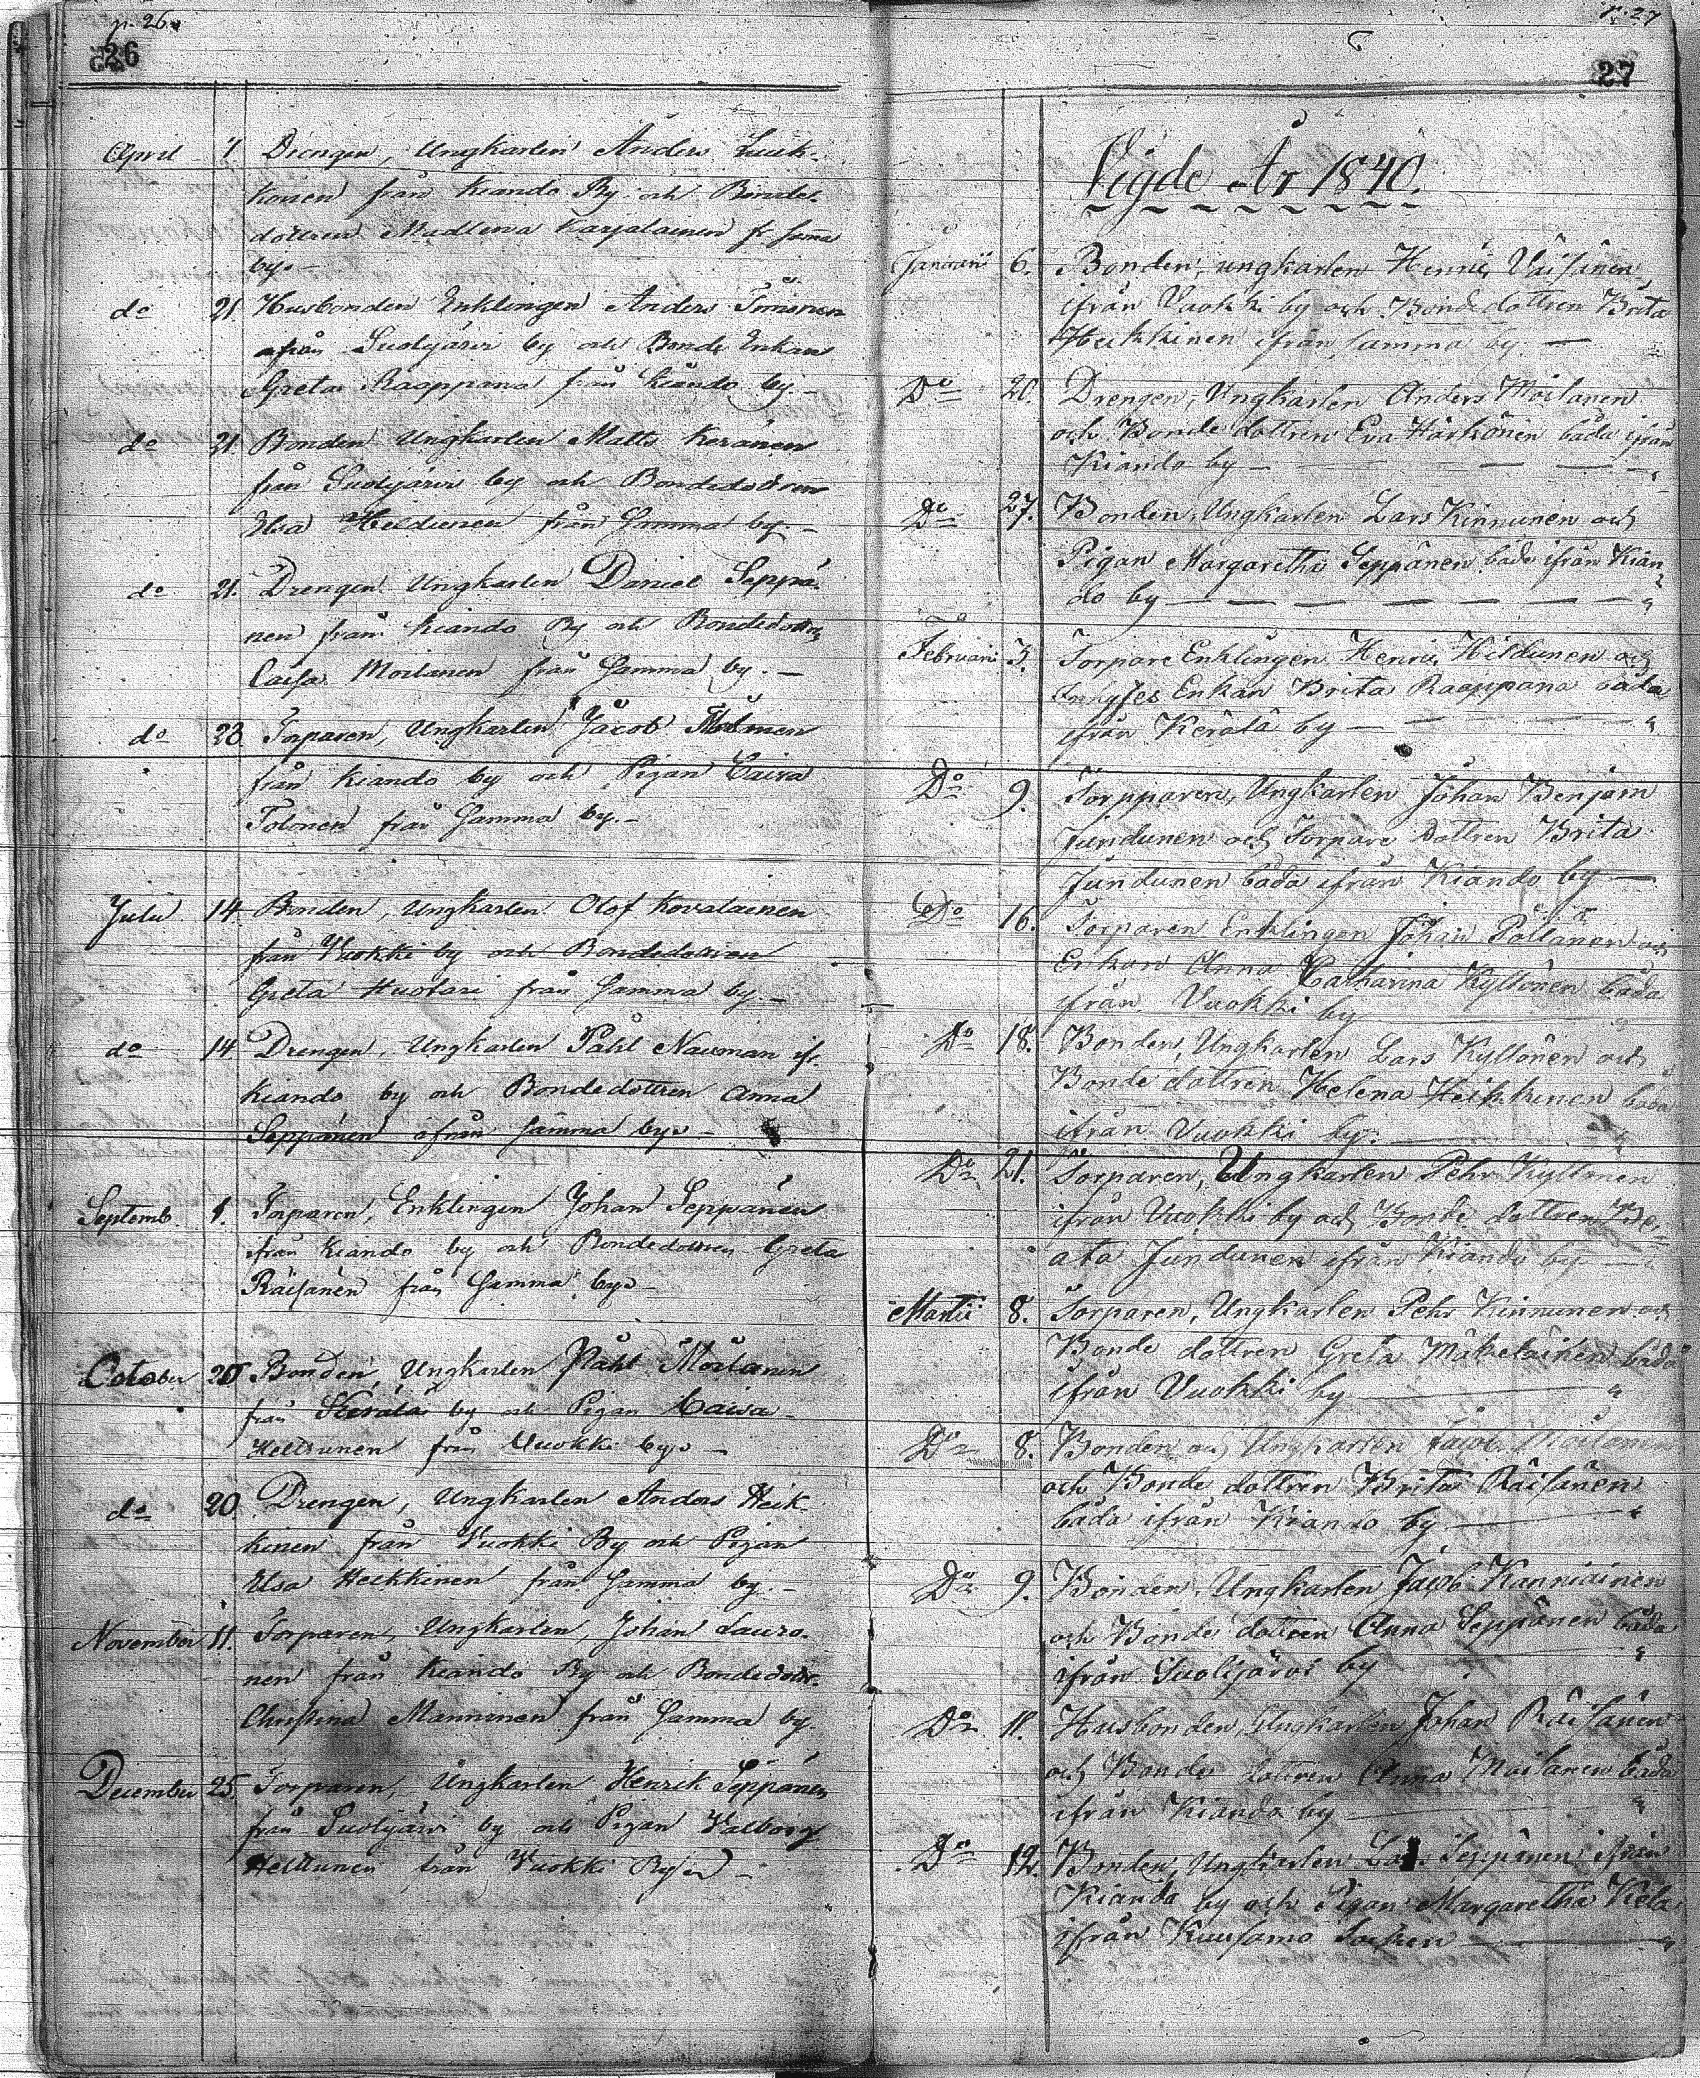 p. 26.
26
April 7 Drengen, Ungkarlen Anders Luuk-
konen från Kiando By och Bonde-
dottren Madlena Karjalainen fr. samma
by. —
do 21. Husbonden Enklingen Anders Timonen
ifrån Suolijärvi by och Bonde Enkan
Greta Raappana från Kiando by. —
do 21 Bonden Ungkarlen Matts Keränen
från Suolijärvi by och Bondedottren
Elsa Heldunen från Samma by. —
do 21. Drengen Ungkarlen Daniel Seppä-
nen från Kiando By och Bondedottr.
Caisa Moilanen från Samma by. —
do 23 Torparen, Ungkarlen Jacob
från Kiando by och Pigan Caisa
Tolonen från Samma by. —
Julii 14 Bonden, Ungkarlen Olof Kovalainen
från Vuokki by och Bondedottren
Greta Huotari från Samma by. —
do 14 Drengen, Ungkarlen Påhl Nauman if.
Kiando by och Bondedottren Anna
Seppänen ifrån samma by. —
Septemb. 1. Torparen, Enklingen Johan Seppänen
ifrån Kiando by och Bondedottren Greta
Räisänen från Samma by. —
October 20 Bonden, Ungkarlen Påhl Moilanen
från Kerälä by och Pigan Caisa
Heldunen från Vuokki by. —
do 20. Drengen, Ungkarlen Anders Heik-
kinen från Vuokki By och Pigan
Elsa Heikkinen från Samma by. —
November 11. Torparen, Ungkarlen, Johan Lauro-
nen från Kiando By och Bondedottr.
Christina Manninen från Samma by.
December 25. Torparen, Ungkarlen Henrik Seppänen
från Suolijärvi by och Pigan Valborg
Heldunen från Vuokki By —
p. 27
27
Vigde År 1840.
Januarii 6. Bonden, ungkarlen Henric Väisänen,
ifrån Vuokki by och Bondedottren Brita
Heikkinen ifrån samma by. —
Do 20. Drengen, Ungkarlen Anders Moilanen
och Bonde dottren Eva Härkönen båda ifrån
Kiando by —
Do 27. Bonden, Ungkarlen Lars Kinnunen och
Pigan Margaretha Seppänen båda ifrån Kian-
do by —
Februarii 3. Torpare Enklingen Henric Heldunen och
Inhyses Enkan Brita Raappana båda
ifrån Kerälä by —
Do 9. Torpparen, Ungkarlen Johan Benjam
Jundunen och Torpare dottren Brita
Jundunen båda ifrån Kiando by —
Do 16. Torparen Enklingen Johan Pöllänen och
Enkan Anna Catharina Kyllönen båda
ifrån Vuokki by
Do 18. Bonden, Ungkarlen Lars Kyllönen och
Bonde dottren Helena Heikkinen båda
ifrån Vuokki by. —
Do 21. Torparen, Ungkarlen Pehr Kyllönen
ifrån Vuokki by och Bonde dottren Be-
ata Jundunen ifrån Kiando by —
Martii 8. Torparen, Ungkarlen Pehr Kinnunen och
Bonde dottren Greta Mäkeläinen båda
ifrån Vuokki by —
Do 8. Bonden och Ungkarlen Jacob Moilanen
och Bonde dottren Brita Räisänen
båda ifrån Kiando by —
Do 9. Bonden, Ungkarlen Jacob Kanniainen
och Bonde dottren Anna Seppänen båda
ifrån Suolijärvi by
Do 18. Husbonden, Ungkarlen Johan Räisänen
och Bonde dottren Anna Moilanen båda
ifrån Kianda by —
Do 19. Bonden, Ungkarlen Seppänen ifrån
Kianda by och Pigan Margaretha Kela
ifrån Kuusamo Socken —